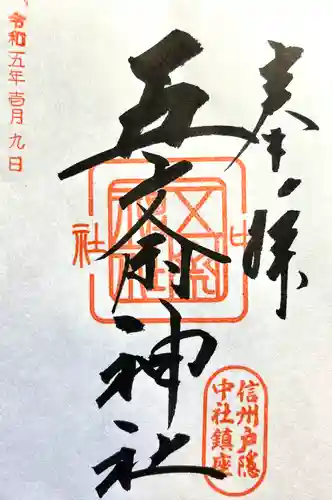 奉拝
五斎神社
令和五年壱月九日
中社
信州戸隠
中社鎮座